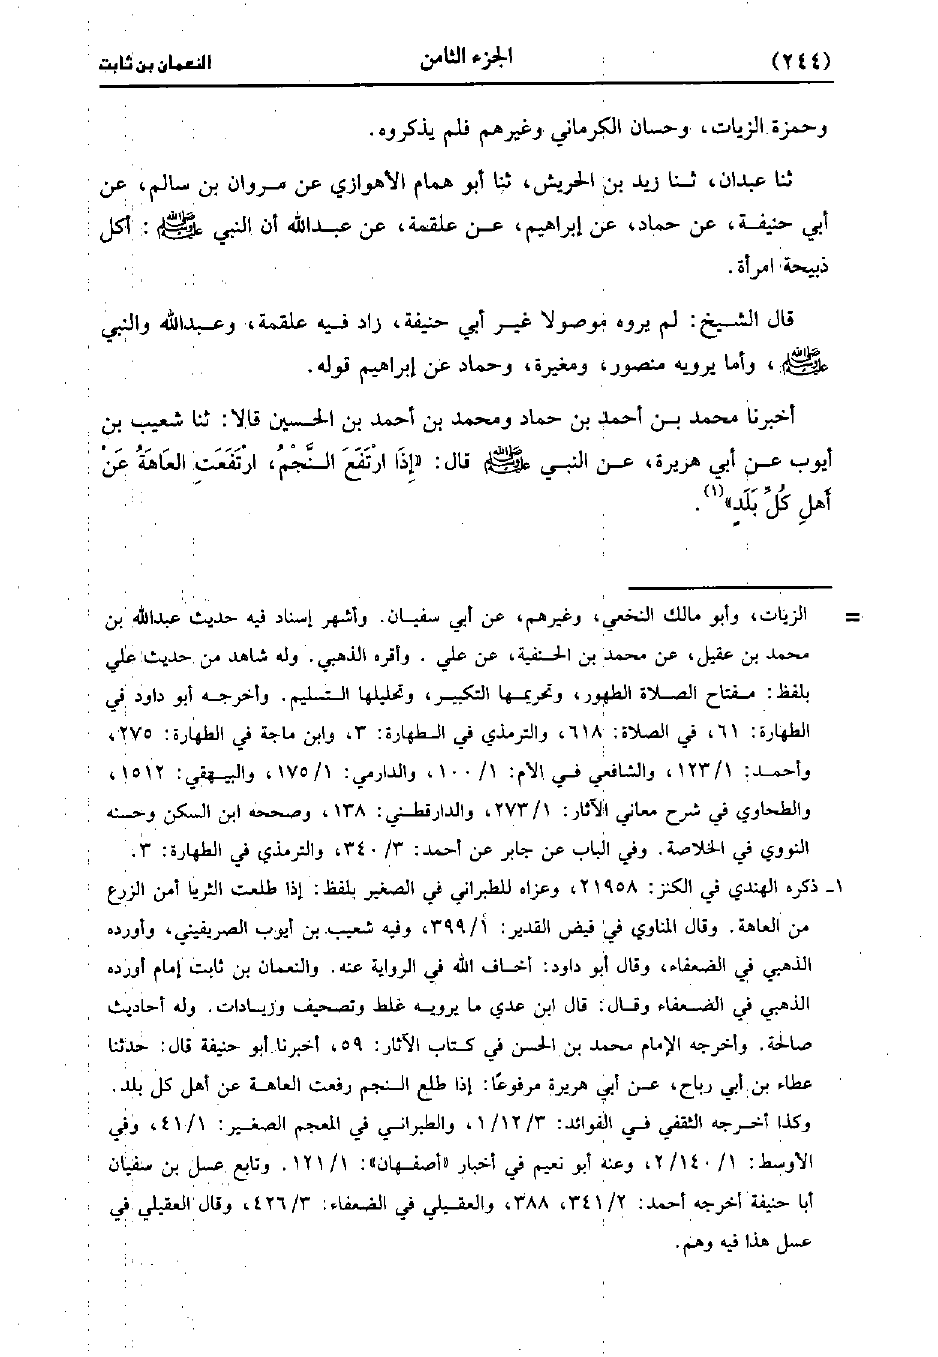 (٢٤٤) الجزء الثامن النعمان بن ثابت
وحمزة الزيات، وحسان الكرماني وغيرهم فلم يذكروه.
ثنا عبدان، ثنا زيد بن الحريش، ثنا أبو همام الأهوازي عن مروان بن سالم، عن
أبي حنيفة، عن حماد، عن إبراهيم، عن علقمة، عن عبدالله أن النبي ﷺ : أكل
ذبيحة امرأة.
قال الشيخ: لم يروه موصولا غير أبي حنيفة، زاد فيه علقمة، وعبدالله والنبي
ﷺ ، وأما يرويه منصور، ومغيرة، وحماد عن إبراهيم قوله.
أخبرنا محمد بن أحمد بن حماد ومحمد بن أحمد بن الحسين قالا: ثنا شعيب بن
أيوب عن أبي هريرة، عن النبي ﷺ قال: «إِذَا ارْتَفَعَ النَّجْمُ، ارْتَفَعَتِ العَاهَةُ عَنْ
أَهلِ كُلِّ بَلَدٍ»(١).
= الزيات، وأبو مالك النخعي، وغيرهم، عن أبي سفيان. وأشهر إسناد فيه حديث عبدالله بن
محمد بن عقيل، عن محمد بن الحنفية، عن علي . وأقره الذهبي. وله شاهد من حديث علي
بلفظ: مفتاح الصلاة الطهور، وتحريمها التكبير، وتحليلها التسليم. وأخرجه أبو داود في
الطهارة: ٦١، في الصلاة: ٦١٨، والترمذي في الطهارة: ٣، وابن ماجة في الطهارة: ٢٧٥،
وأحمد: ١٢٣/١، والشافعي في الأم: ١٠٠/١، والدارمي: ١٧٥/١، والبيهقي: ١٥١٢،
والطحاوي في شرح معاني الآثار: ٢٧٣/١، والدارقطني: ١٣٨، وصححه ابن السكن وحسنه
النووي في الخلاصة. وفي الباب عن جابر عن أحمد: ٣٤٠/٣، والترمذي في الطهارة: ٣.
١ـ ذكره الهندي في الكنز: ٢١٩٥٨، وعزاه للطبراني في الصغير بلفظ: إذا طلعت الثريا أمن الزرع
من العاهة. وقال المناوي في فيض القدير: ٣٩٩/١، وفيه شعيب بن أيوب الصريفيني، وأورده
الذهبي في الضعفاء، وقال أبو داود: أخاف الله في الرواية عنه. والنعمان بن ثابت إمام أورده
الذهبي في الضعفاء وقال: قال ابن عدي ما يرويه غلط وتصحيف وزيادات. وله أحاديث
صالحة. وأخرجه الإمام محمد بن الحسن في كتاب الآثار: ٥٩، أخبرنا أبو حنيفة قال: حدثنا
عطاء بن أبي رباح، عن أبي هريرة مرفوعًا: إذا طلع النجم رفعت العاهة عن أهل كل بلد.
وكذا أخرجه الثقفي في الفوائد: ١/١٢/٣، والطبراني في المعجم الصغير: ٤١/١، وفي
الأوسط: ٢/١٤٠/١، وعنه أبو نعيم في أخبار «أصفهان»: ١٢١/١. وتابع عسل بن سفيان
أبا حنيفة أخرجه أحمد: ٣٤١/٢، ٣٨٨، والعقيلي في الضعفاء: ٤٢٦/٣، وقال العقيلي في
عسل هذا فيه وهم.